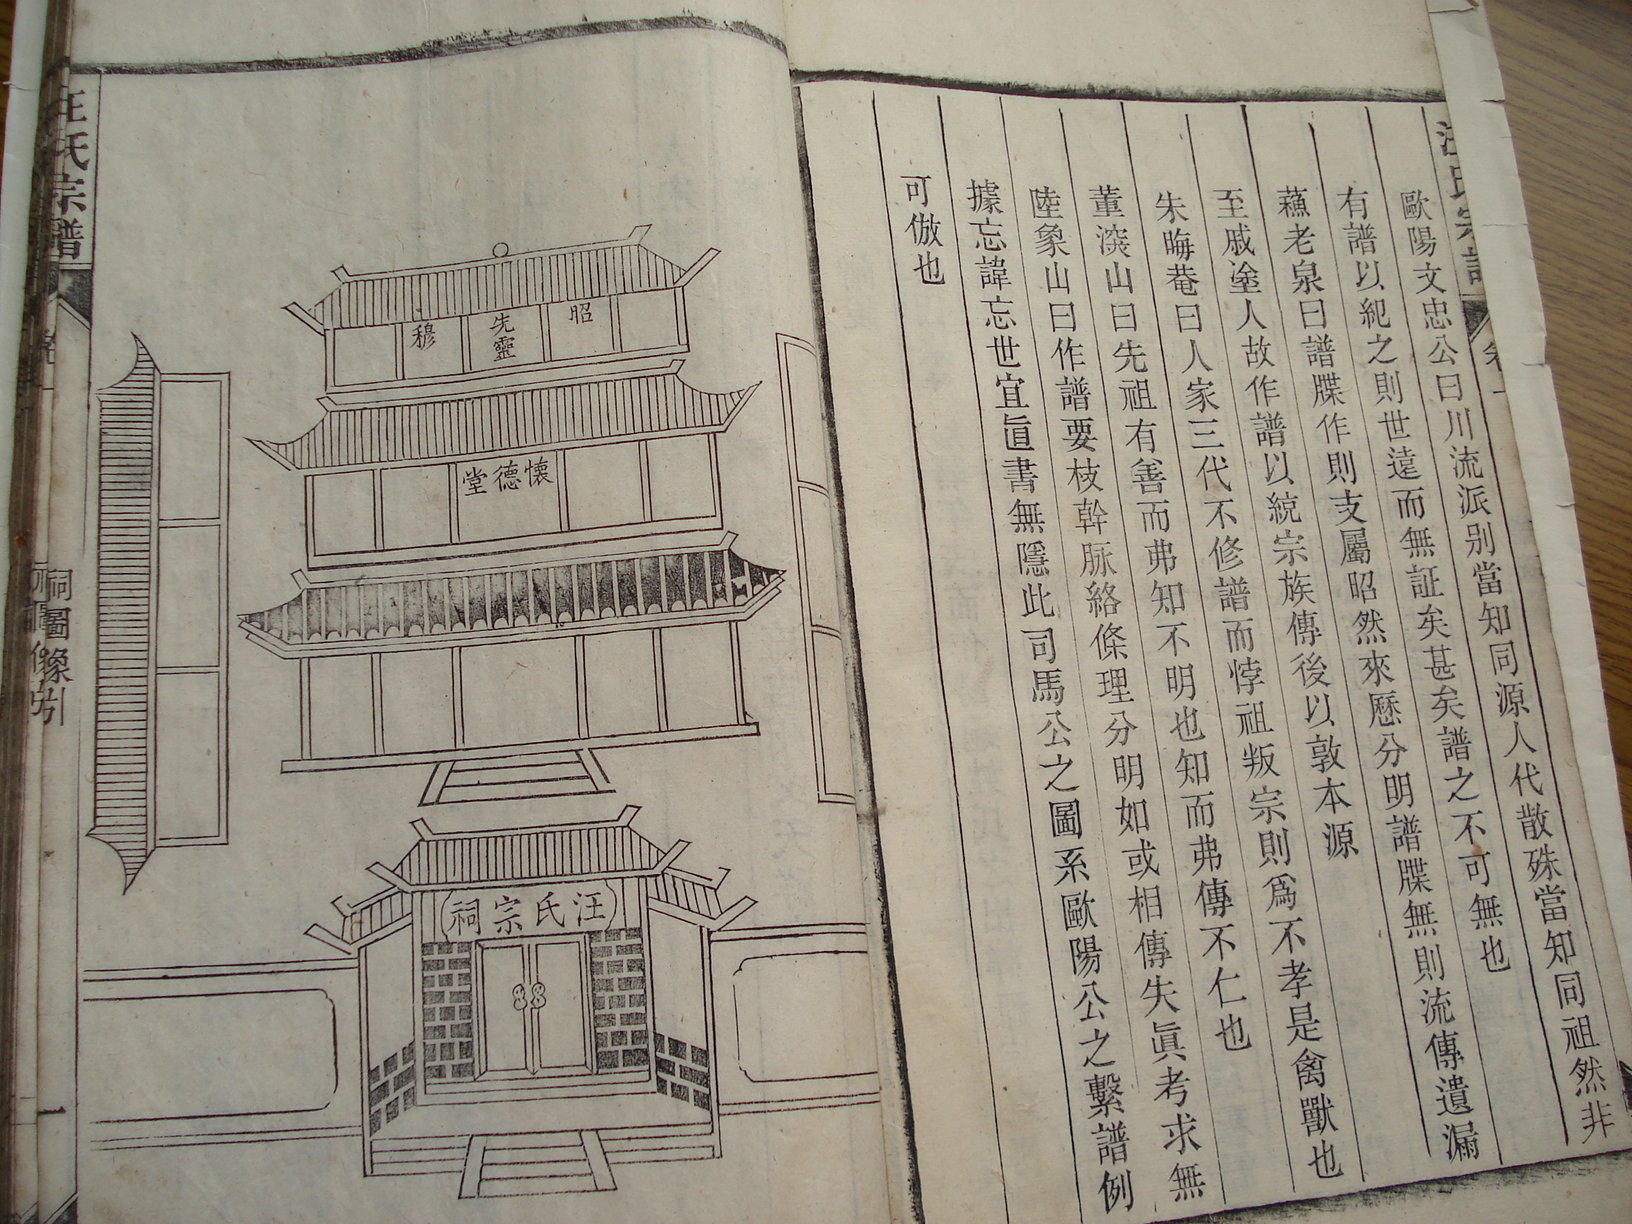 歐陽文忠公曰川流派别當知同源人代散殊當知同祖然非
有譜以紀之則世遠而無証矣甚矣譜之不可無也
蘓老泉曰譜牒作則支屬昭然來歷分明譜牒無則流傳遺漏
至戚塗人故作譜以統宗族傳後以敦本源
朱晦菴曰人家三代不修譜而悖祖叛宗則爲不孝是禽獸也
董濲山曰先祖有善而弗知不明也知而弗傳不仁也
陸象山曰作譜要枝幹脉絡條理分明如或相傳失眞考求無
據忘諱忘世宜直書無隱此司馬公之圖系歐陽公之繫譜例
可倣也
昭
先靈
穆
懷德堂
汪氏宗祠
汪氏宗譜
祠圖像引
一